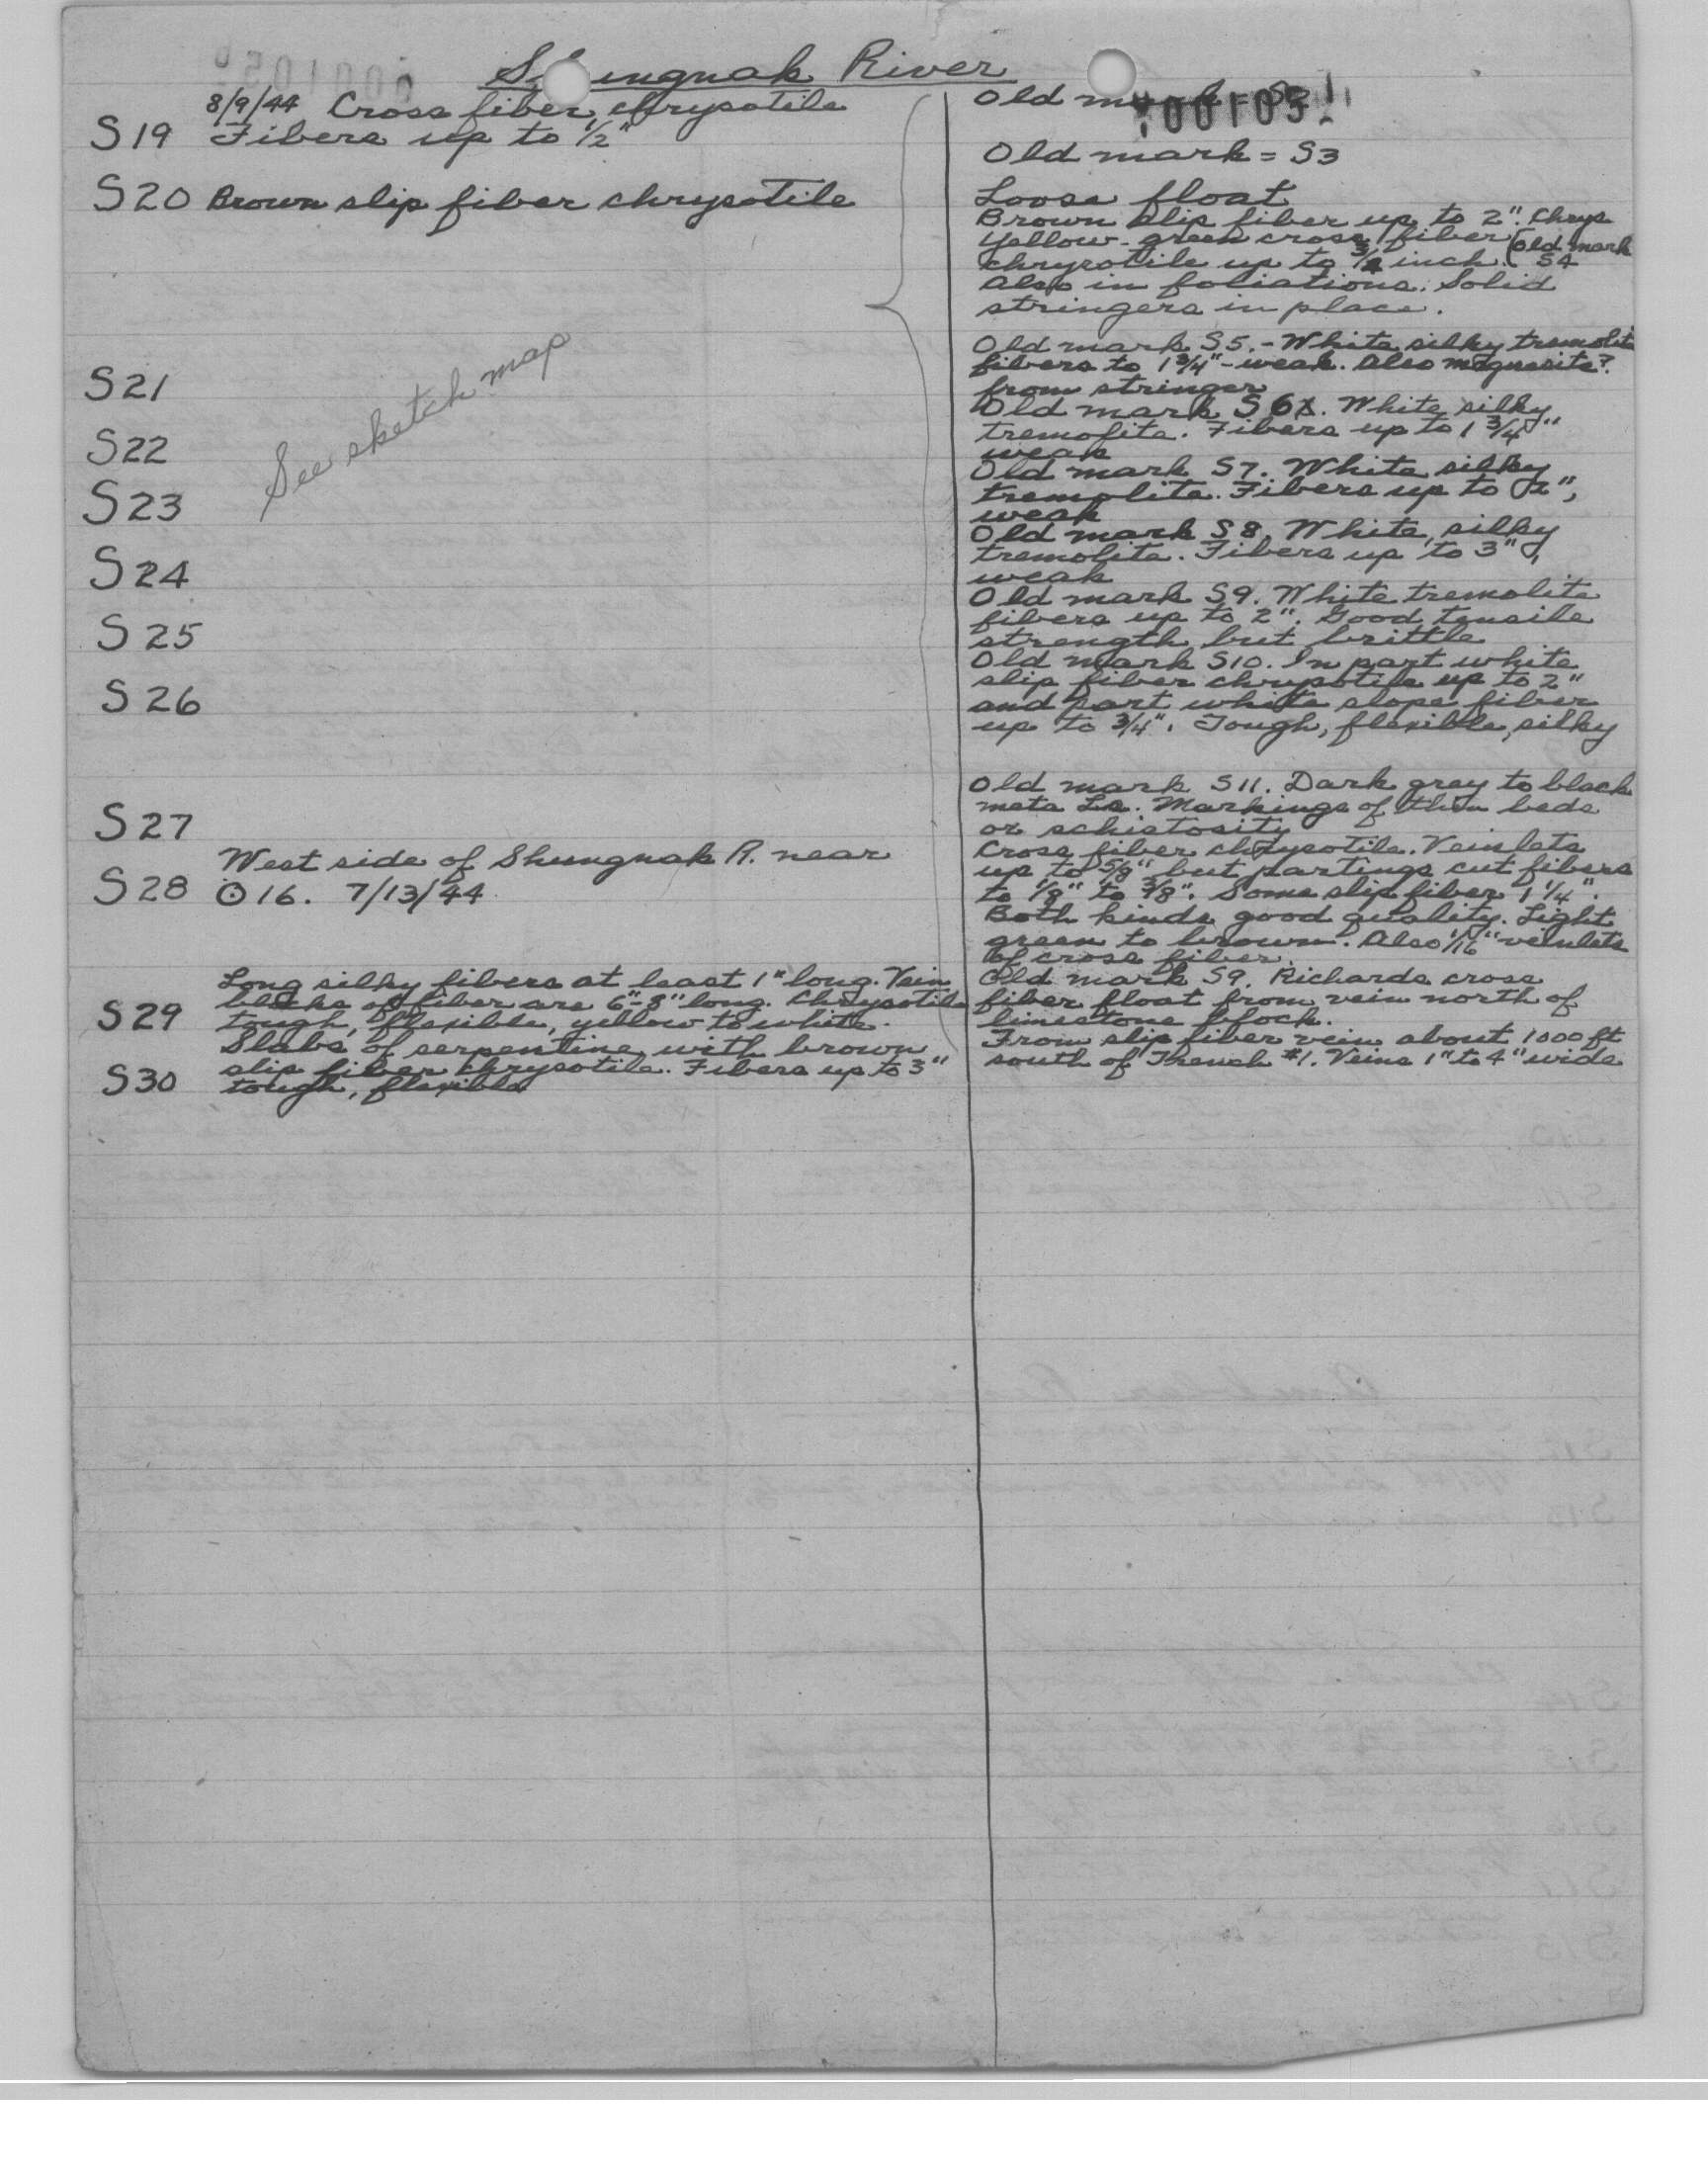 Shungnak River
8/9/44 Cross fiber chrysotile
S19 Fibers up to 1/2"
S20 Brown slip fiber chrysotile
See sketch map
S21
S22
S23
S24
S25
S26
S27
West side of Shungnak R. near
S28 ⊙16. 7/13/44
Long silky fibers at least 1" long. Vein
blocks of fiber are 6"-8" long. Chrysotile
S29 tough, flexible, yellow to white.
Slabs of serpentine with brown
slip fiber chrysotile. Fibers up to 3"
S30 tough, flexible
Old mark = S2
001031
Old mark = S3
Loose float
Brown slip fiber up to 2". Chrys
Yellow-green cross fiber (Old mark
chrysotile up to 3/4 inch. S4
Also in foliations. Solid
stringers in place.
Old mark S5.- White silky tremolite
fibers to 1 3/4" - weak. Also magnesite?
from stringer
Old mark S6. White silky
tremolite. Fibers up to 1 3/4"
weak
Old mark S7. White silky
tremolite. Fibers up to 2",
weak
Old mark S8. White, silky
tremolite. Fibers up to 3",
weak
Old mark S9. White tremolite
fibers up to 2". Good tensile
strength but brittle
Old mark S10. In part white
slip fiber chrysotile up to 2"
and part white slope fiber
up to 3/4". Tough, flexible, silky
Old mark S11. Dark gray to black
meta Ls. Markings of thin beds
or schistosity
Cross fiber chrysotile. Veinlets
up to 5/8" but partings cut fibers
to 1/8" to 3/8". Some slip fiber 1 1/4".
Both kinds good quality. Light
green to brown. Also 1/16" veinlets
of cross fiber.
Old mark S9. Richards cross
fiber float from vein north of
limestone block.
From slip fiber vein about 1000 ft
south of Trench #1. Veins 1" to 4" wide